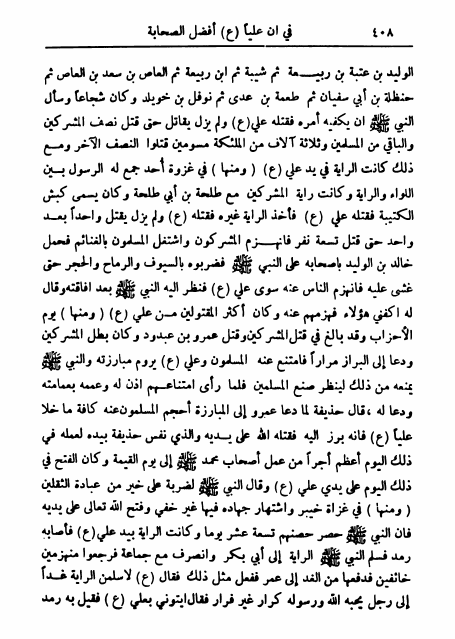 ٤٠٨ في ان علياً (ع) أفضل الصحابة
الوليد بن عتبة بن ربيعة ثم شيبة ثم ابن ربيعة ثم العاص بن سعد بن العاص ثم
حنظلة بن أبي سفيان ثم طعمة بن عدى ثم نوفل بن خويلد وكان شجاعاً وسأل
النبي ﷺ ان يكفيه أمره فقتله علي (ع) ولم يزل يقاتل حتى قتل نصف المشركين
والباقي من المسلمين وثلاثة آلاف من الملئكة مسومين قتلوا النصف الآخر ومع
ذلك كانت الراية في يد علي (ع) ( ومنها ) في غزوة أُحد جمع له الرسول بين
اللواء والراية وكانت راية المشركين مع طلحة بن أبي طلحة وكان يسمى كبش
الكتيبة فقتله علي (ع) فأخذ الراية غيره فقتله (ع) ولم يزل يقتل واحداً بعد
واحد حتى قتل تسعة نفر فانهزم المشركون واشتغل المسلمون بالغنائم فحمل
خالد بن الوليد باصحابه على النبي ﷺ فضربوه بالسيوف والرماح والحجر حتى
غشى عليه فانهزم الناس عنه سوى علي (ع) فنظر اليه النبي ﷺ بعد افاقته وقال
له اكفني هؤلاء فهزمهم عنه وكان أكثر المقتولين من علي (ع) ( ومنها ) يوم
الأحزاب وقد بالغ في قتل المشركين وقتل عمرو بن عبدود وكان بطل المشركين
ودعا إلى البراز مراراً فامتنع عنه المسلمون وعلي (ع) يروم مبارزته والنبي ﷺ
يمنعه من ذلك لينظر صنع المسلمين فلما رأى امتناعهم اذن له وعممه بعمامته
ودعا له ، قال حذيفة لما دعا عمرو إلى المبارزة أحجم المسلمون عنه كافة ما خلا
علياً (ع) فانه برز اليه فقتله الله على يديه والذي نفس حذيفة بيده لعمله في
ذلك اليوم أعظم أجراً من عمل أصحاب محمد ﷺ إلى يوم القيمة وكان الفتح في
ذلك اليوم على يدي علي (ع) وقال النبي ﷺ لضربة على خير من عبادة الثقلين
( ومنها ) في غزاة خيبر واشتهار جهاده فيها غير خفي وفتح الله تعالى على يديه
فان النبي ﷺ حصر حصنهم تسعة عشر يوما وكانت الراية بيد علي (ع) فأصابه
رمد فسلم النبي ﷺ الراية إلى أبي بكر وانصرف مع جماعة فرجعوا منهزمين
خائفين فدفعها من الغد إلى عمر ففعل مثل ذلك فقال (ع) لاسلمن الراية غداً
إلى رجل يحبه الله ورسوله كرار غير فرار فقال ايتوني بعلي (ع) فقيل به رمد